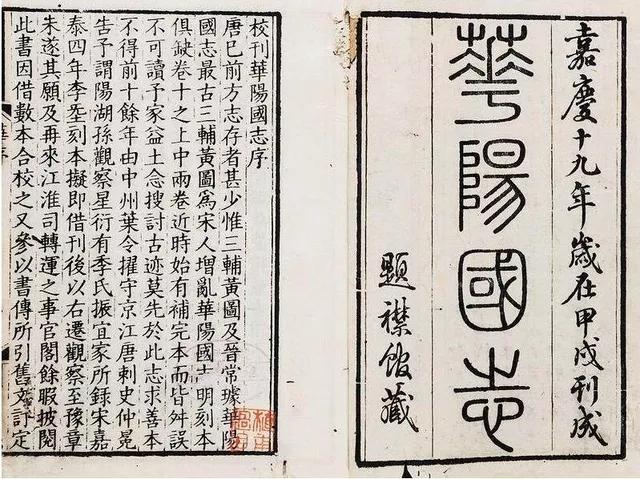 嘉慶十九年歲在甲戌刊成
華陽國志
題襟館藏
校刊華陽國志序
唐已前方志存者甚少惟三輔黃圖及晉常璩華陽
國志最古三輔黃圖爲宋人增亂華陽國志明刻本
俱缺卷十之上中兩卷近時始有補完本而皆舛誤
不可讀予家益土念搜討古迹莫先於此志求善本
不得前十餘年由中州葉令擢守京江唐剌史仲冕
告予謂陽湖孫觀察星衍有季氏振宜家所錄宋嘉
泰四年李𡌴刻本擬即借刊後以右遷觀察至豫章
未遂其願及再來江淮司轉運之事官閣餘暇披閱
此書因借數本合校之又參以書傳所引舊文訂定